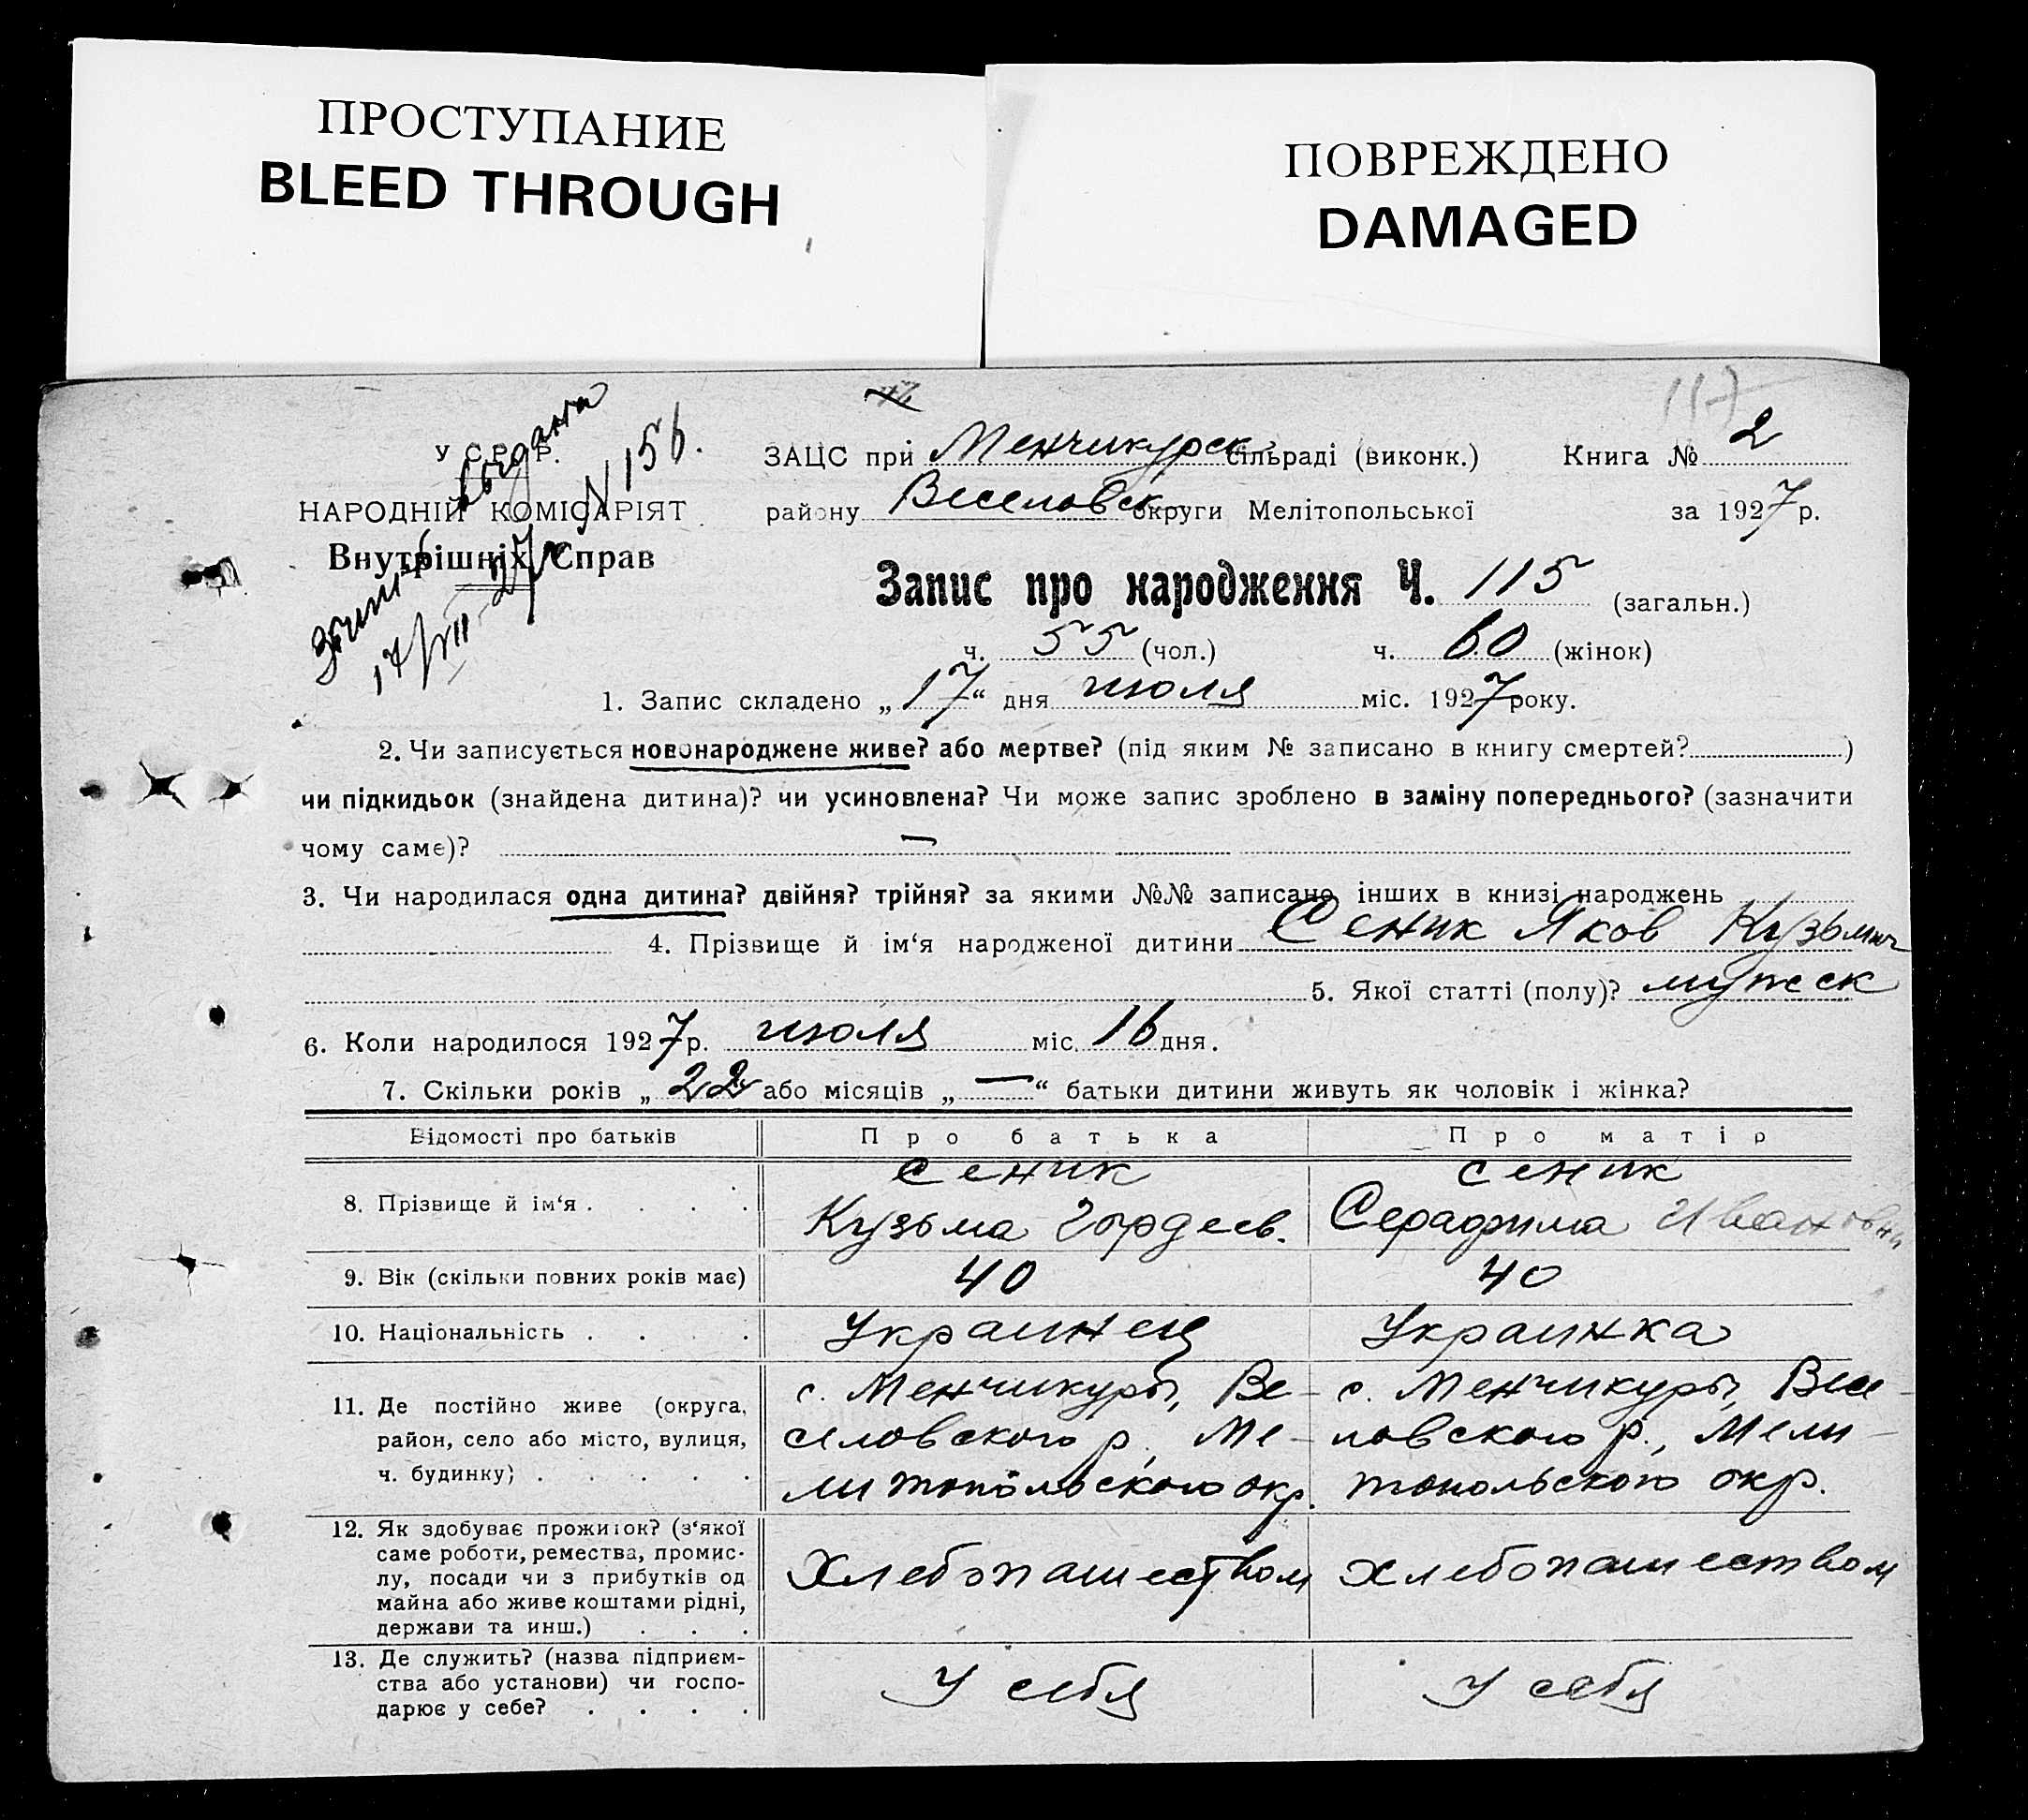 ПРОСТУПАНИЕ
BLEED THROUGH
ПОВРЕЖДЕНО
DAMAGED
117
У.С.Р.Р.
НАРОДНІЙ КОМІСАРІЯТ
Внутрішніх Справ
выдана
17/VII-27 N 156.
ЗАЦС при Менчикурск. сільраді (виконк.) Книга № 2
району Веселовск округи Мелітопольської за 1927 р.
Запис про народження Ч. 115 (загальн.)
ч. 55 (чол.) ч. 60 (жінок)
1. Запис складено „17“ дня июля міс. 1927 року.
2. Чи записується новонароджене живе? або мертве? (під яким № записано в книгу смертей? )
чи підкидьок (знайдена дитина)? чи усиновлена? Чи може запис зроблено в заміну попереднього? (зазначити
чому саме)? —
3. Чи народилася одна дитина? двійня? трійня? за якими №№ записано інших в книзі народжень
4. Прізвище й ім‘я народженої дитини Сеник Яков Кузьмич
5. Якої статті (полу)? мужеск
6. Коли народилося 1927 р. июля міс. 16 дня.
7. Скільки років „22 або місяців „—“ батьки дитини живуть як чоловік і жінка?
Відомості про батьків Про батька Про матір
8. Прізвище й ім‘я . . . . Сеник Кузьма Гордеев. Сеник Серафима Ивановна
9. Вік (скільки повних років має) 40 40
10. Національність . . . . Украинец Украинка
11. Де постійно живе (округа, с. Менчикуры, Ве- с. Менчикуры, Весе-
район, село або місто, вулиця, селовского р., Ме- ловского р., Мели-
ч. будинку) . . . . . литопольского окр. топольского окр.
12. Як здобуває прожиток? (з‘якої
саме роботи, ремества, промис-
лу, посади чи з прибутків од Хлебопашеством Хлебопашеством
майна або живе коштами рідні,
держави та инш.) . . .
13. Де служить? (назва підприєм-
ства або установи) чи госпо- У себя У себя
дарює у себе? . . . .